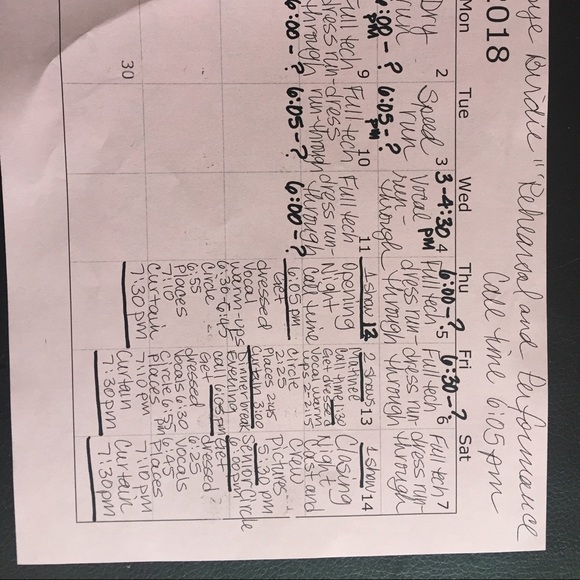 bye Birdie" Rehearsal and Performance
Call time 6:05pm
2018
Mon
Tue
Wed
Thu
Fri
Sat
2
Dry
run
6:00 - ?
pm
3
Speed
run
6:05 - ?
pm
3-4:30 4
Vocal pm
run-
through
6:00-? 5
Full tech
dress run-
through
6:30-? 6
Full tech
dress run-
through
7
Full tech
dress run-
through
9
Full tech
dress run-
through
6:00 - ?
10
Full tech
run-dress
run-through
6:05 - ?
11
Full tech
dress run-
through
6:00 - ?
1 show 12
Opening
Night
Call time
6:05 pm
Get
dressed
Vocal
warm-ups
6:30-6:45
Circle
6:55
Places
7:10
Curtain
7:30pm
2 shows 13
Matinee
Call time 1:30
Get dressed
Vocal warm
ups
Circle
Places 2:45
Curtain 3:00
Dinner break
Evening
call 6:05 pm
Get
dressed
Vocals 6:30
Circle 6:55
Places
7:10 pm
Curtain
7:30pm
1 show 14
Closing
Night
Cast and
Crew
Pictures
pm
Senior Circle
Get
dressed
6:25
Vocals
Places
7:10pm
Curtain
7:30pm
30